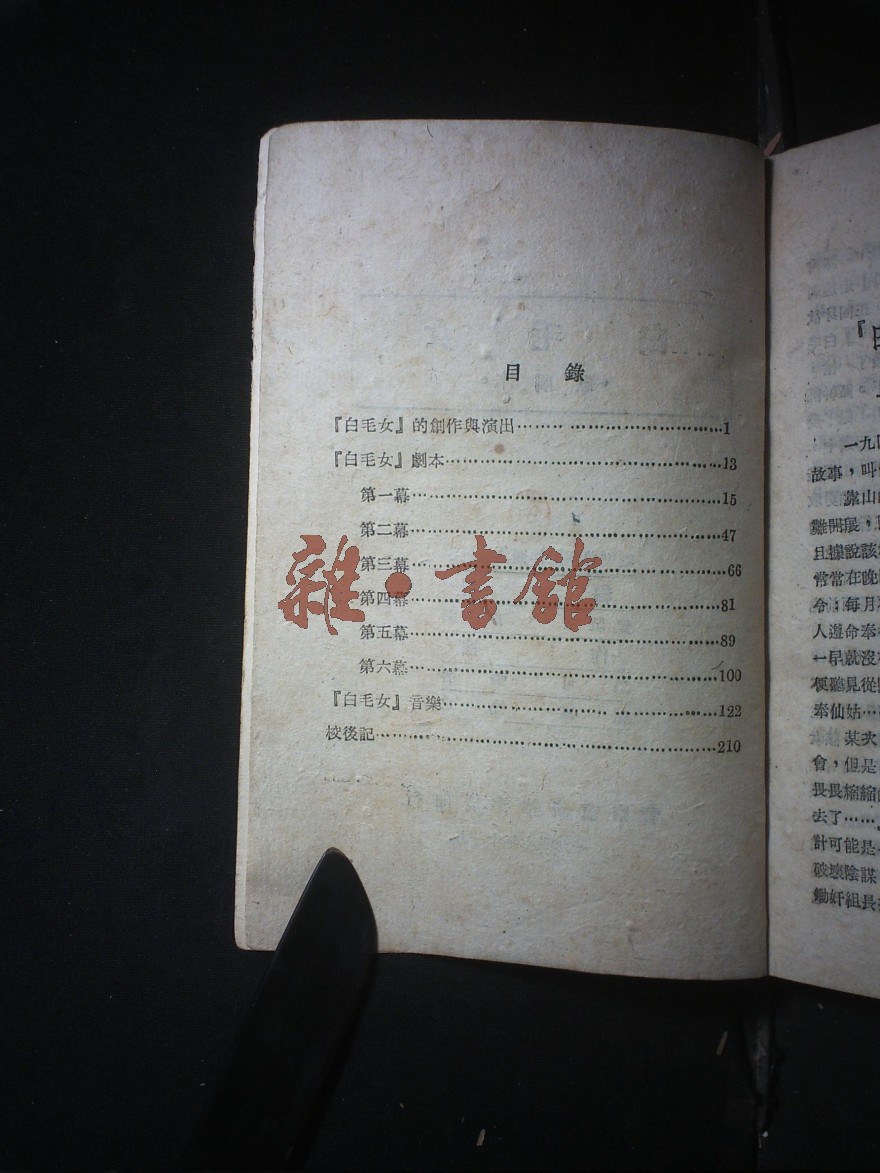 目錄
『白毛女』的創作與演出……………………………1
『白毛女』劇本……………………………13
第一幕……………………………15
第二幕……………………………47
第三幕……………………………66
第四幕……………………………81
第五幕……………………………89
第六幕……………………………100
『白毛女』音樂……………………………122
校後記……………………………210
雜·書館
『白
一九四
故事,叫
靠山
難開展,
且據說該
常常在晚
令:每月
人遵命奉
一早就沒
便聽見從
奉仙姑…
某次
會,但是
畏畏縮縮
去了……
計可能是
破壞陰謀
鋤奸組長